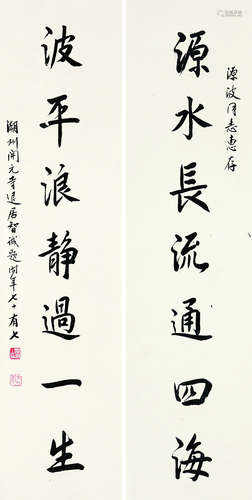 源波同志惠存
源水長流通四海
波平浪静過一生
潮州開元寺退居智誠題時年七十有七